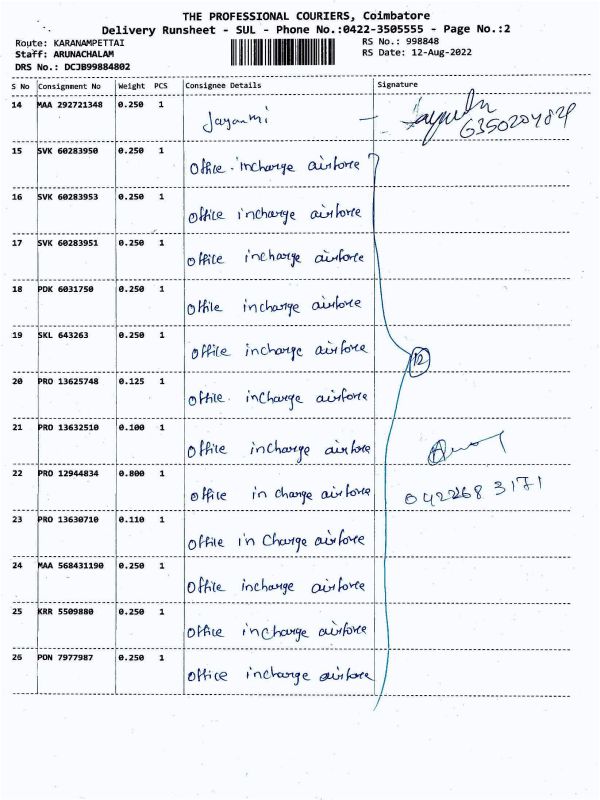 THE PROFESSIONAL COURIERS, Coimbatore
Delivery Runsheet - SUL - Phone No.:0422-3505555 - Page No.:2
Route: KARANAMPETTAI
RS No.: 998848
Staff: ARUNACHALAM
RS Date: 12-Aug-2022
DRS No.: DCJB99884802
S No Consignment No Weight PCS Consignee Details Signature
14 MAA 292721348 0.250 1 Jayanmi -
15 SVK 60283950 0.250 1 Office . incharge airforce
16 SVK 60283953 0.250 1 Office incharge airforce
17 SVK 60283951 0.250 1 Office incharge airforce
18 PDK 6031750 0.250 1 Office incharge airforce
19 SKL 643263 0.250 1 Office incharge airforce
12
20 PRO 13625748 0.125 1 Office. incharge airforce
21 PRO 13632510 0.100 1 Office incharge airforce
22 PRO 12944834 0.800 1 Office in charge airforce 042268 3171
23 PRO 13630710 0.110 1 Office in Charge airforce
24 MAA 568431190 0.250 1 Office incharge airforce
25 KRR 5509880 0.250 1 Office incharge airforce
26 PON 7977987 0.250 1 Office incharge airforce